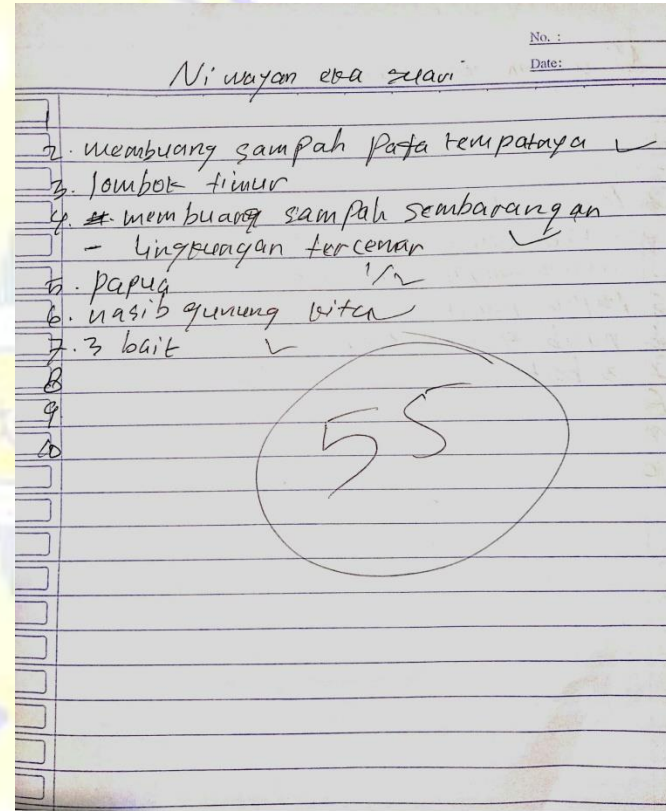 No. :
Date:
Ni wayan eka
1
2. membuang sampah pada tempatnya ✓
3. lombok timur
4. membuang sampah sembarangan
- lingkungan tercemar ✓
5. papua 1/2
6. nasib gunung kita
7. 3 bait ✓
8
9.
10
55